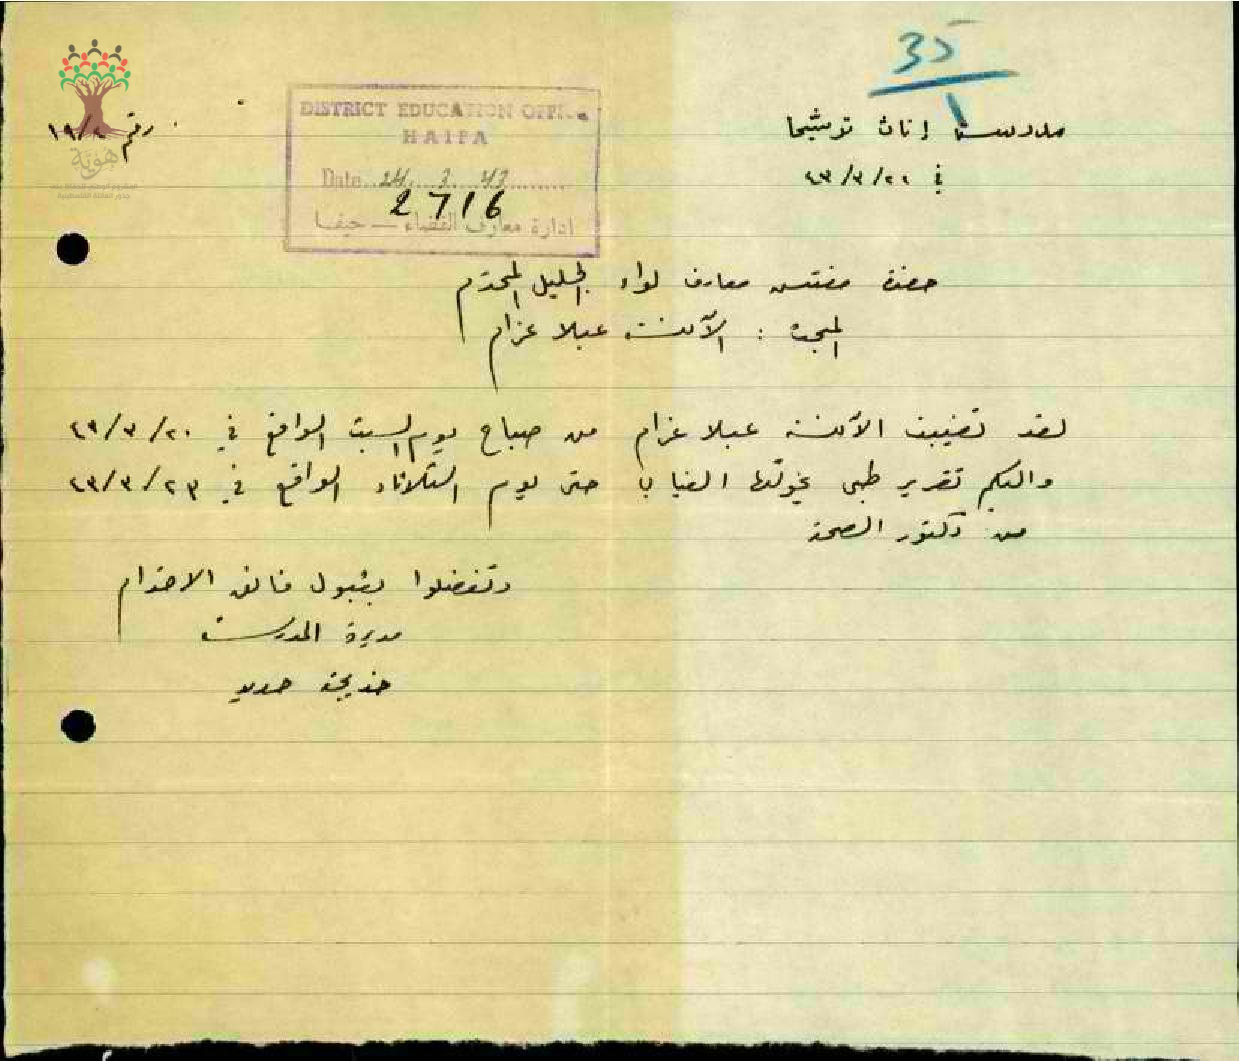 35
1
مدرسة إناث ترشيحا
رقم ١٩/
في ٤٣/٣/٢١
DISTRICT EDUCATION OFFICE
HAIFA
Date 24. 3. 43
2716
ادارة معارف القضاء — حيفا
هوية
حضرة مفتش معارف لواء الجليل المحترم
المبحث : الآنسة عبلا عزام
لقد تغيبت الآنسة عبلا عزام من صباح يوم السبت الواقع في ٤٣/٣/٢٠
واليكم تقرير طبي يخولها الغياب حتى يوم الثلاثاء الواقع في ٤٣/٣/٢٣
من دكتور الصحة
وتفضلوا بقبول فائق الاحترام
مديرة المدرسة
خديجة حديد